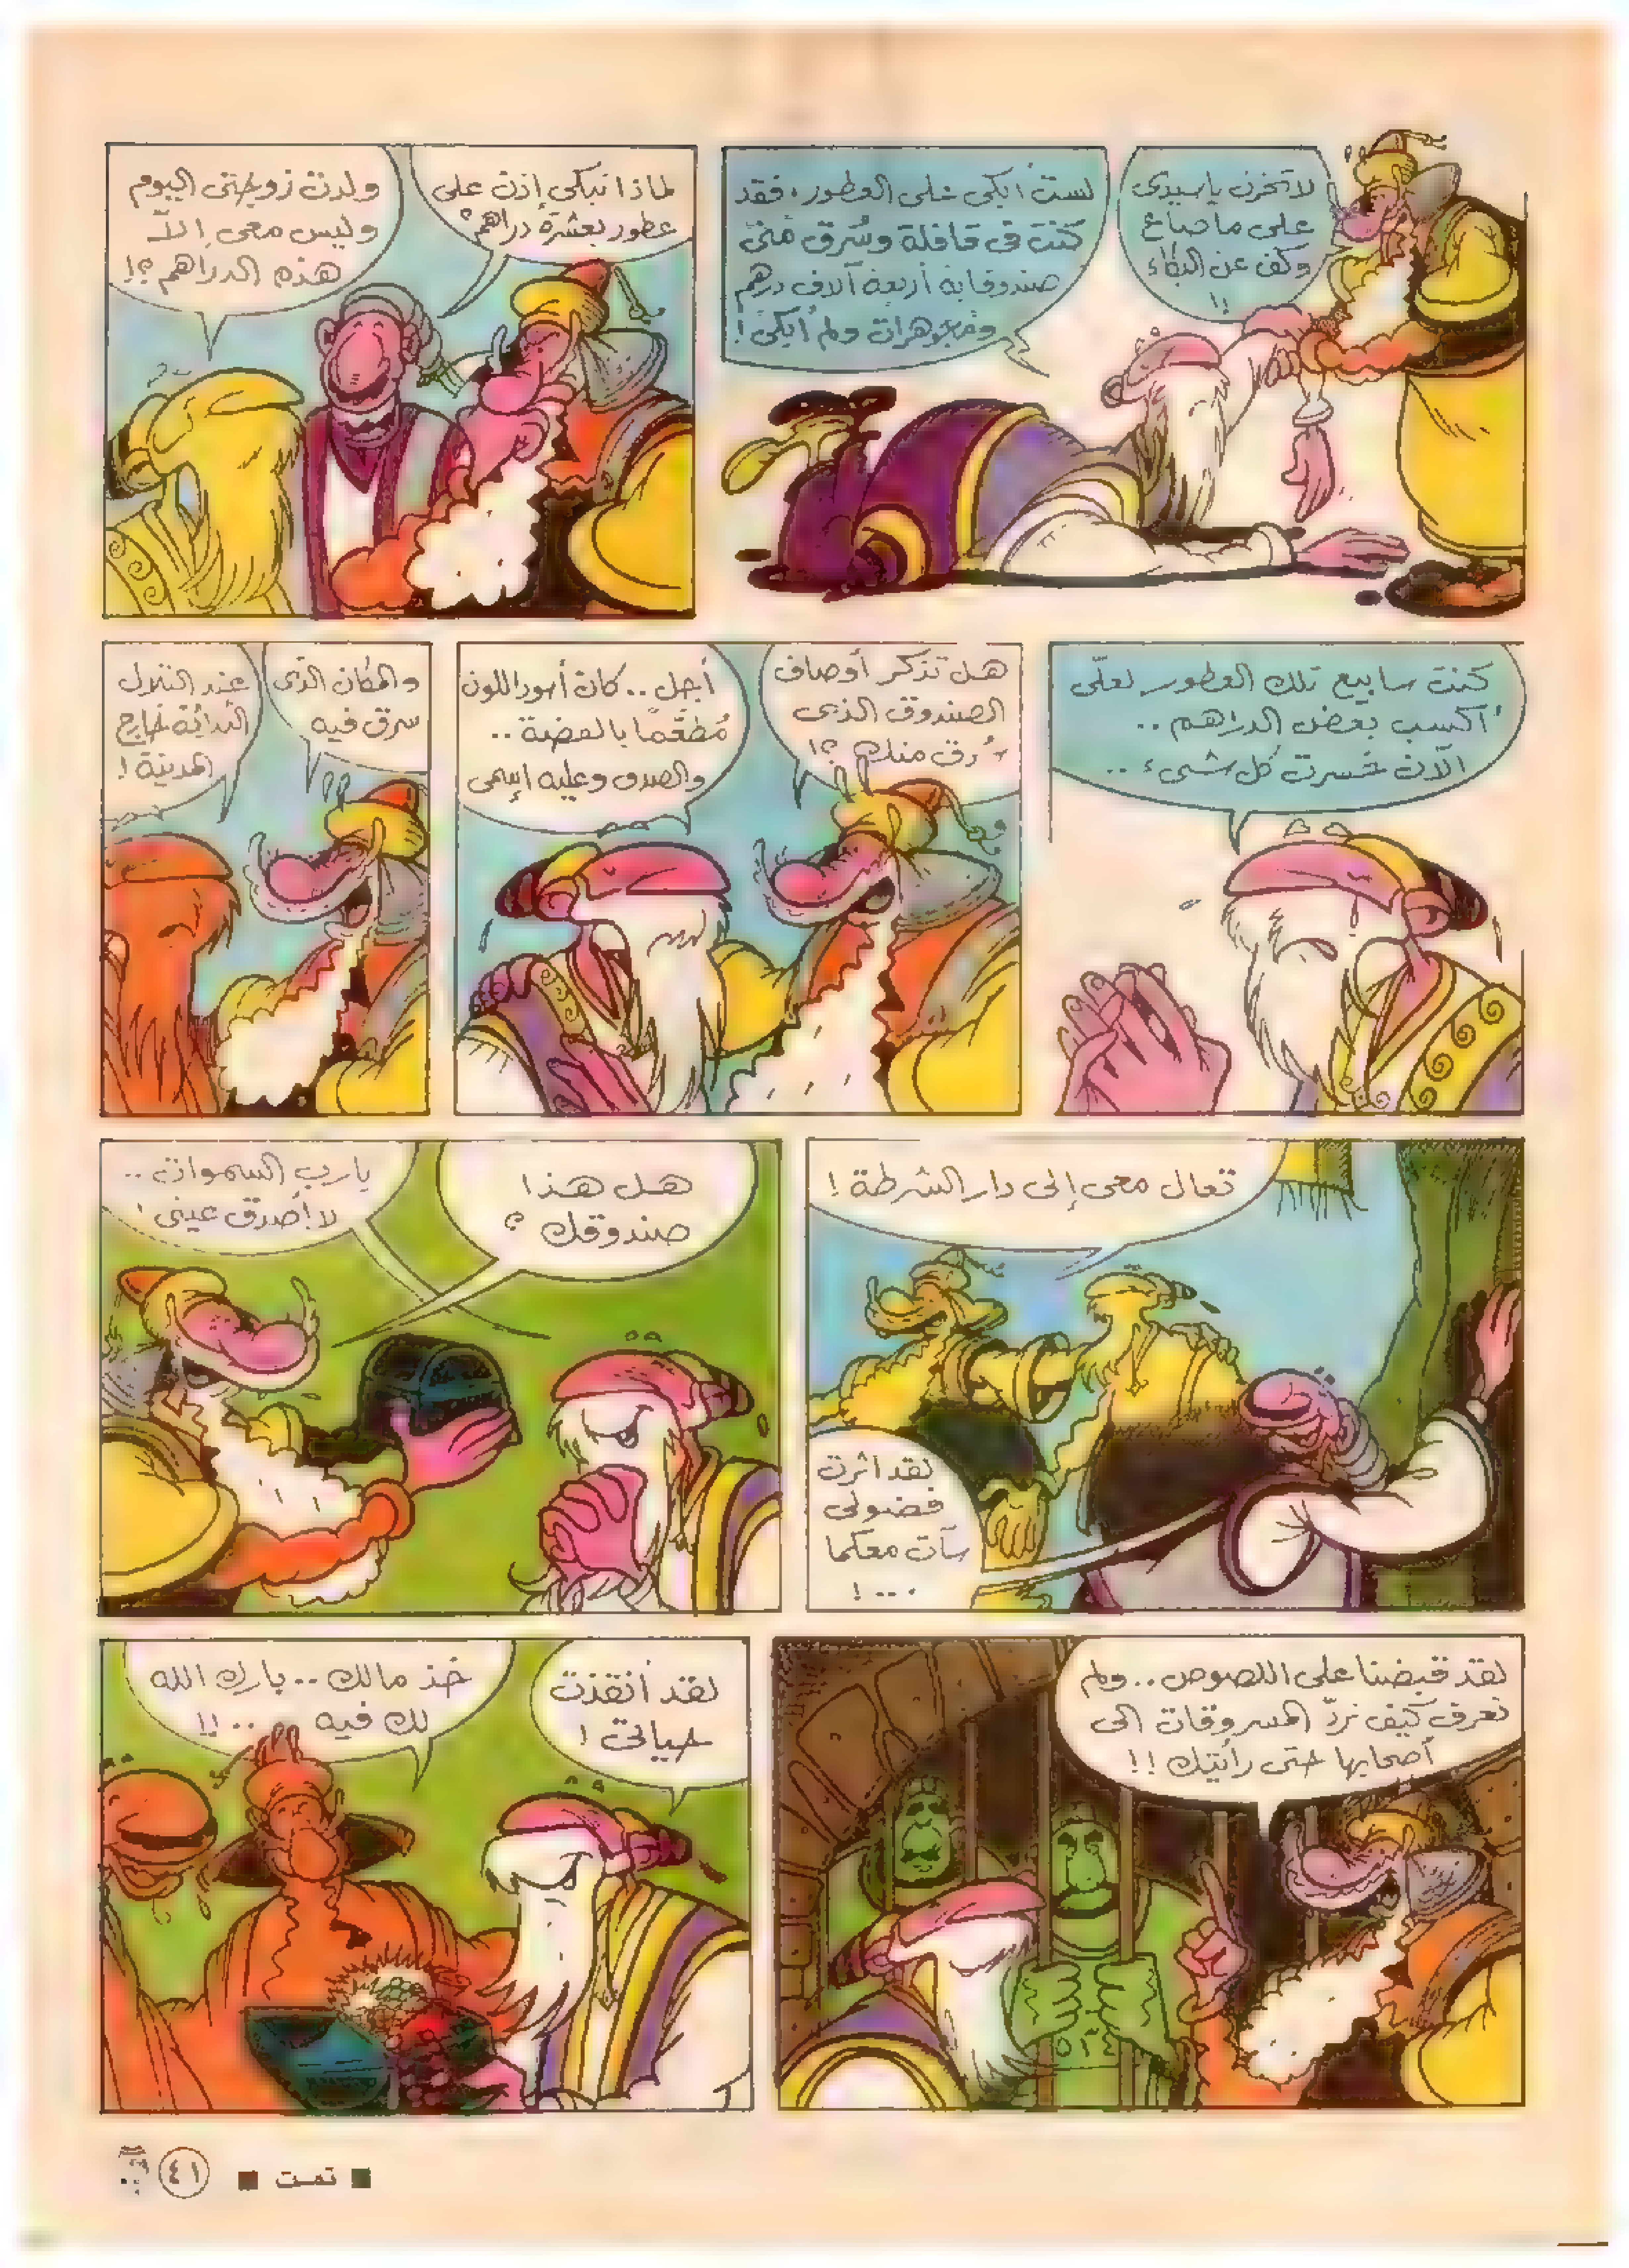 لا تحزن يا سيدى
على ما ضاع
وكف عن البكاء
!!
لست أبكى على العطور، فقد
كنت فى قافلة وسُرق منّى
صندوقا به أربعة آلاف درهم
ومجوهرات ولم أبكى!
لماذا تبكى إذن على
عطور بعشرة دراهم؟
ولدت زوجتى اليوم
وليس معى إلاّ
هذه الدراهم؟!
كنت سابيع تلك العطور لعلّى
أكسب بعض الدراهم..
الآن خسرت كل شىء..
هل تذكر أوصاف
الصندوق الذى
سُرق منك؟!
أجل.. كان أسود اللون
مُطعّمًا بالفضة..
والصدف وعليه إسمى
والمكان الذى
سرق فيه
عند التلال
الثلاثة خارج
المدينة!
تعال معى إلى دار الشرطة!
لقد اثرت
فضولى
سآت معكما
...!
هل هذا
صندوقك؟
يا رب السموات..
لا أصدق عينى!
لقد قبضنا على اللصوص.. ولم
نعرف كيف نردّ المسروقات الى
أصحابها حتى رأيتك!!
٥٢٤
لقد أنقذت
حياتى!
خذ مالك.. بارك الله
لك فيه ..!!
■ تمت ■
٤١